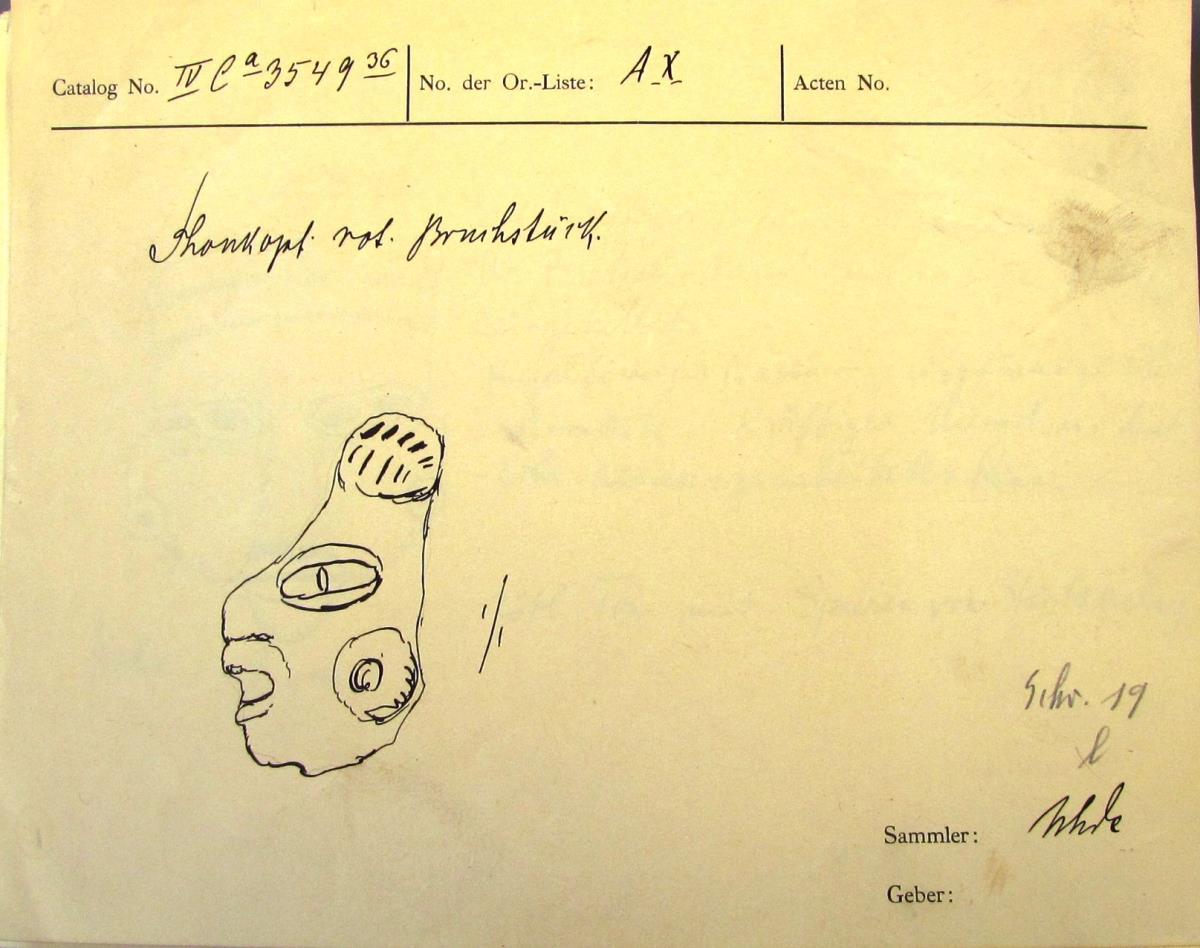 Catalog No. IV Ca 3549 36 No. der Or.-Liste: A X Acten No.
Thonkopf. rot. Bruchstück.
1/1
Schr. 19
l
Sammler: Uhde
Geber: